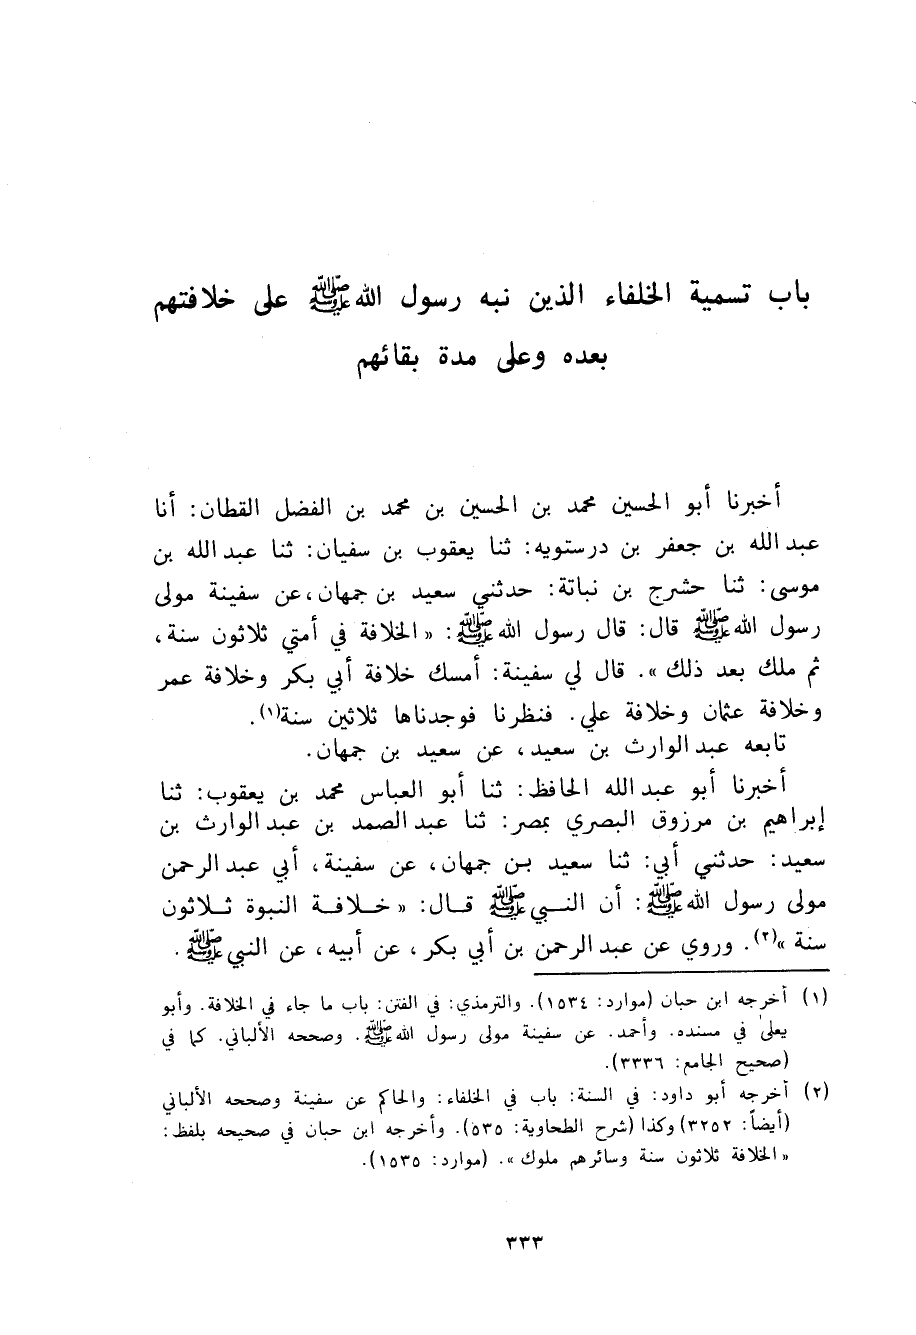 باب تسمية الخلفاء الذين نبه رسول الله ﷺ على خلافتهم
بعده وعلى مدة بقائهم
أخبرنا أبو الحسين محمد بن الحسين بن محمد بن الفضل القطان: أنا
عبد الله بن جعفر بن درستويه: ثنا يعقوب بن سفيان: ثنا عبد الله بن
موسى: ثنا حشرج بن نباتة: حدثني سعيد بن جمهان، عن سفينة مولى
رسول الله ﷺ قال: قال رسول الله ﷺ: «الخلافة في أمتي ثلاثون سنة،
ثم ملك بعد ذلك». قال لي سفينة: أمسك خلافة أبي بكر وخلافة عمر
وخلافة عثمان وخلافة علي. فنظرنا فوجدناها ثلاثين سنة(١).
تابعه عبد الوارث بن سعيد، عن سعيد بن جمهان.
أخبرنا أبو عبد الله الحافظ: ثنا أبو العباس محمد بن يعقوب: ثنا
إبراهيم بن مرزوق البصري بمصر: ثنا عبد الصمد بن عبد الوارث بن
سعيد: حدثني أبي: ثنا سعيد بن جمهان، عن سفينة، أبي عبد الرحمن
مولى رسول الله ﷺ: أن النبي ﷺ قال: «خلافة النبوة ثلاثون
سنة»(٢). وروي عن عبد الرحمن بن أبي بكر، عن أبيه، عن النبي ﷺ.
(١) أخرجه ابن حبان (موارد: ١٥٣٤). والترمذي: في الفتن: باب ما جاء في الخلافة. وأبو
يعلى في مسنده. وأحمد. عن سفينة مولى رسول الله ﷺ. وصححه الألباني. كما في
(صحيح الجامع: ٣٣٣٦).
(٢) أخرجه أبو داود: في السنة: باب في الخلفاء: والحاكم عن سفينة وصححه الألباني
(أيضاً: ٣٢٥٢) وكذا (شرح الطحاوية: ٥٣٥). وأخرجه ابن حبان في صحيحه بلفظ:
«الخلافة ثلاثون سنة وسائرهم ملوك». (موارد: ١٥٣٥).
٣٣٣